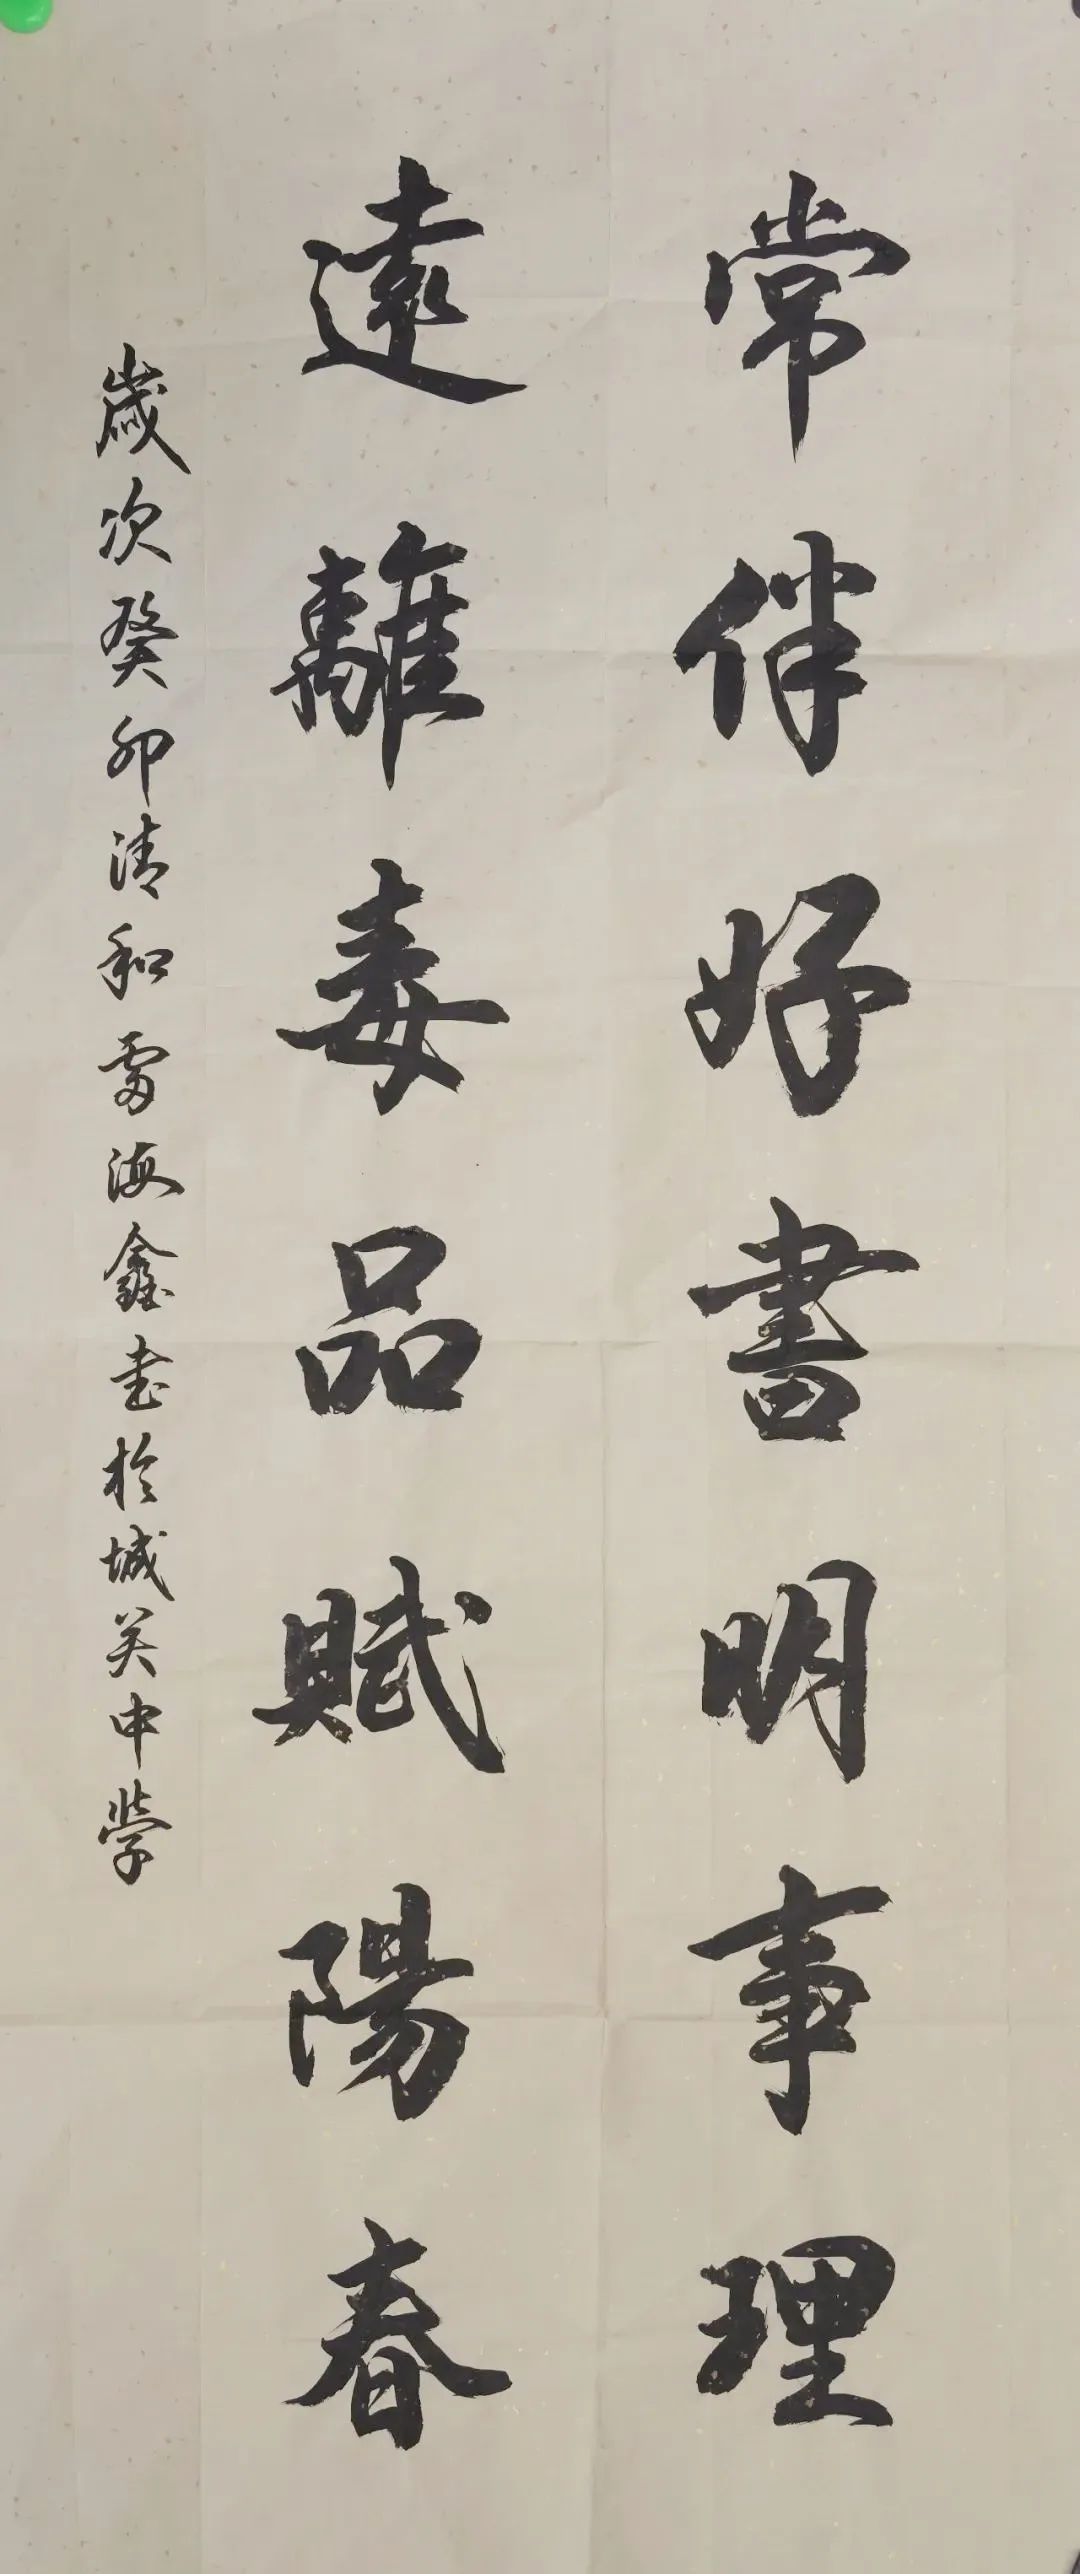 常伴好書明事理
遠離毒品賦陽春
歲次癸卯清和雷海鑫书於城关中學